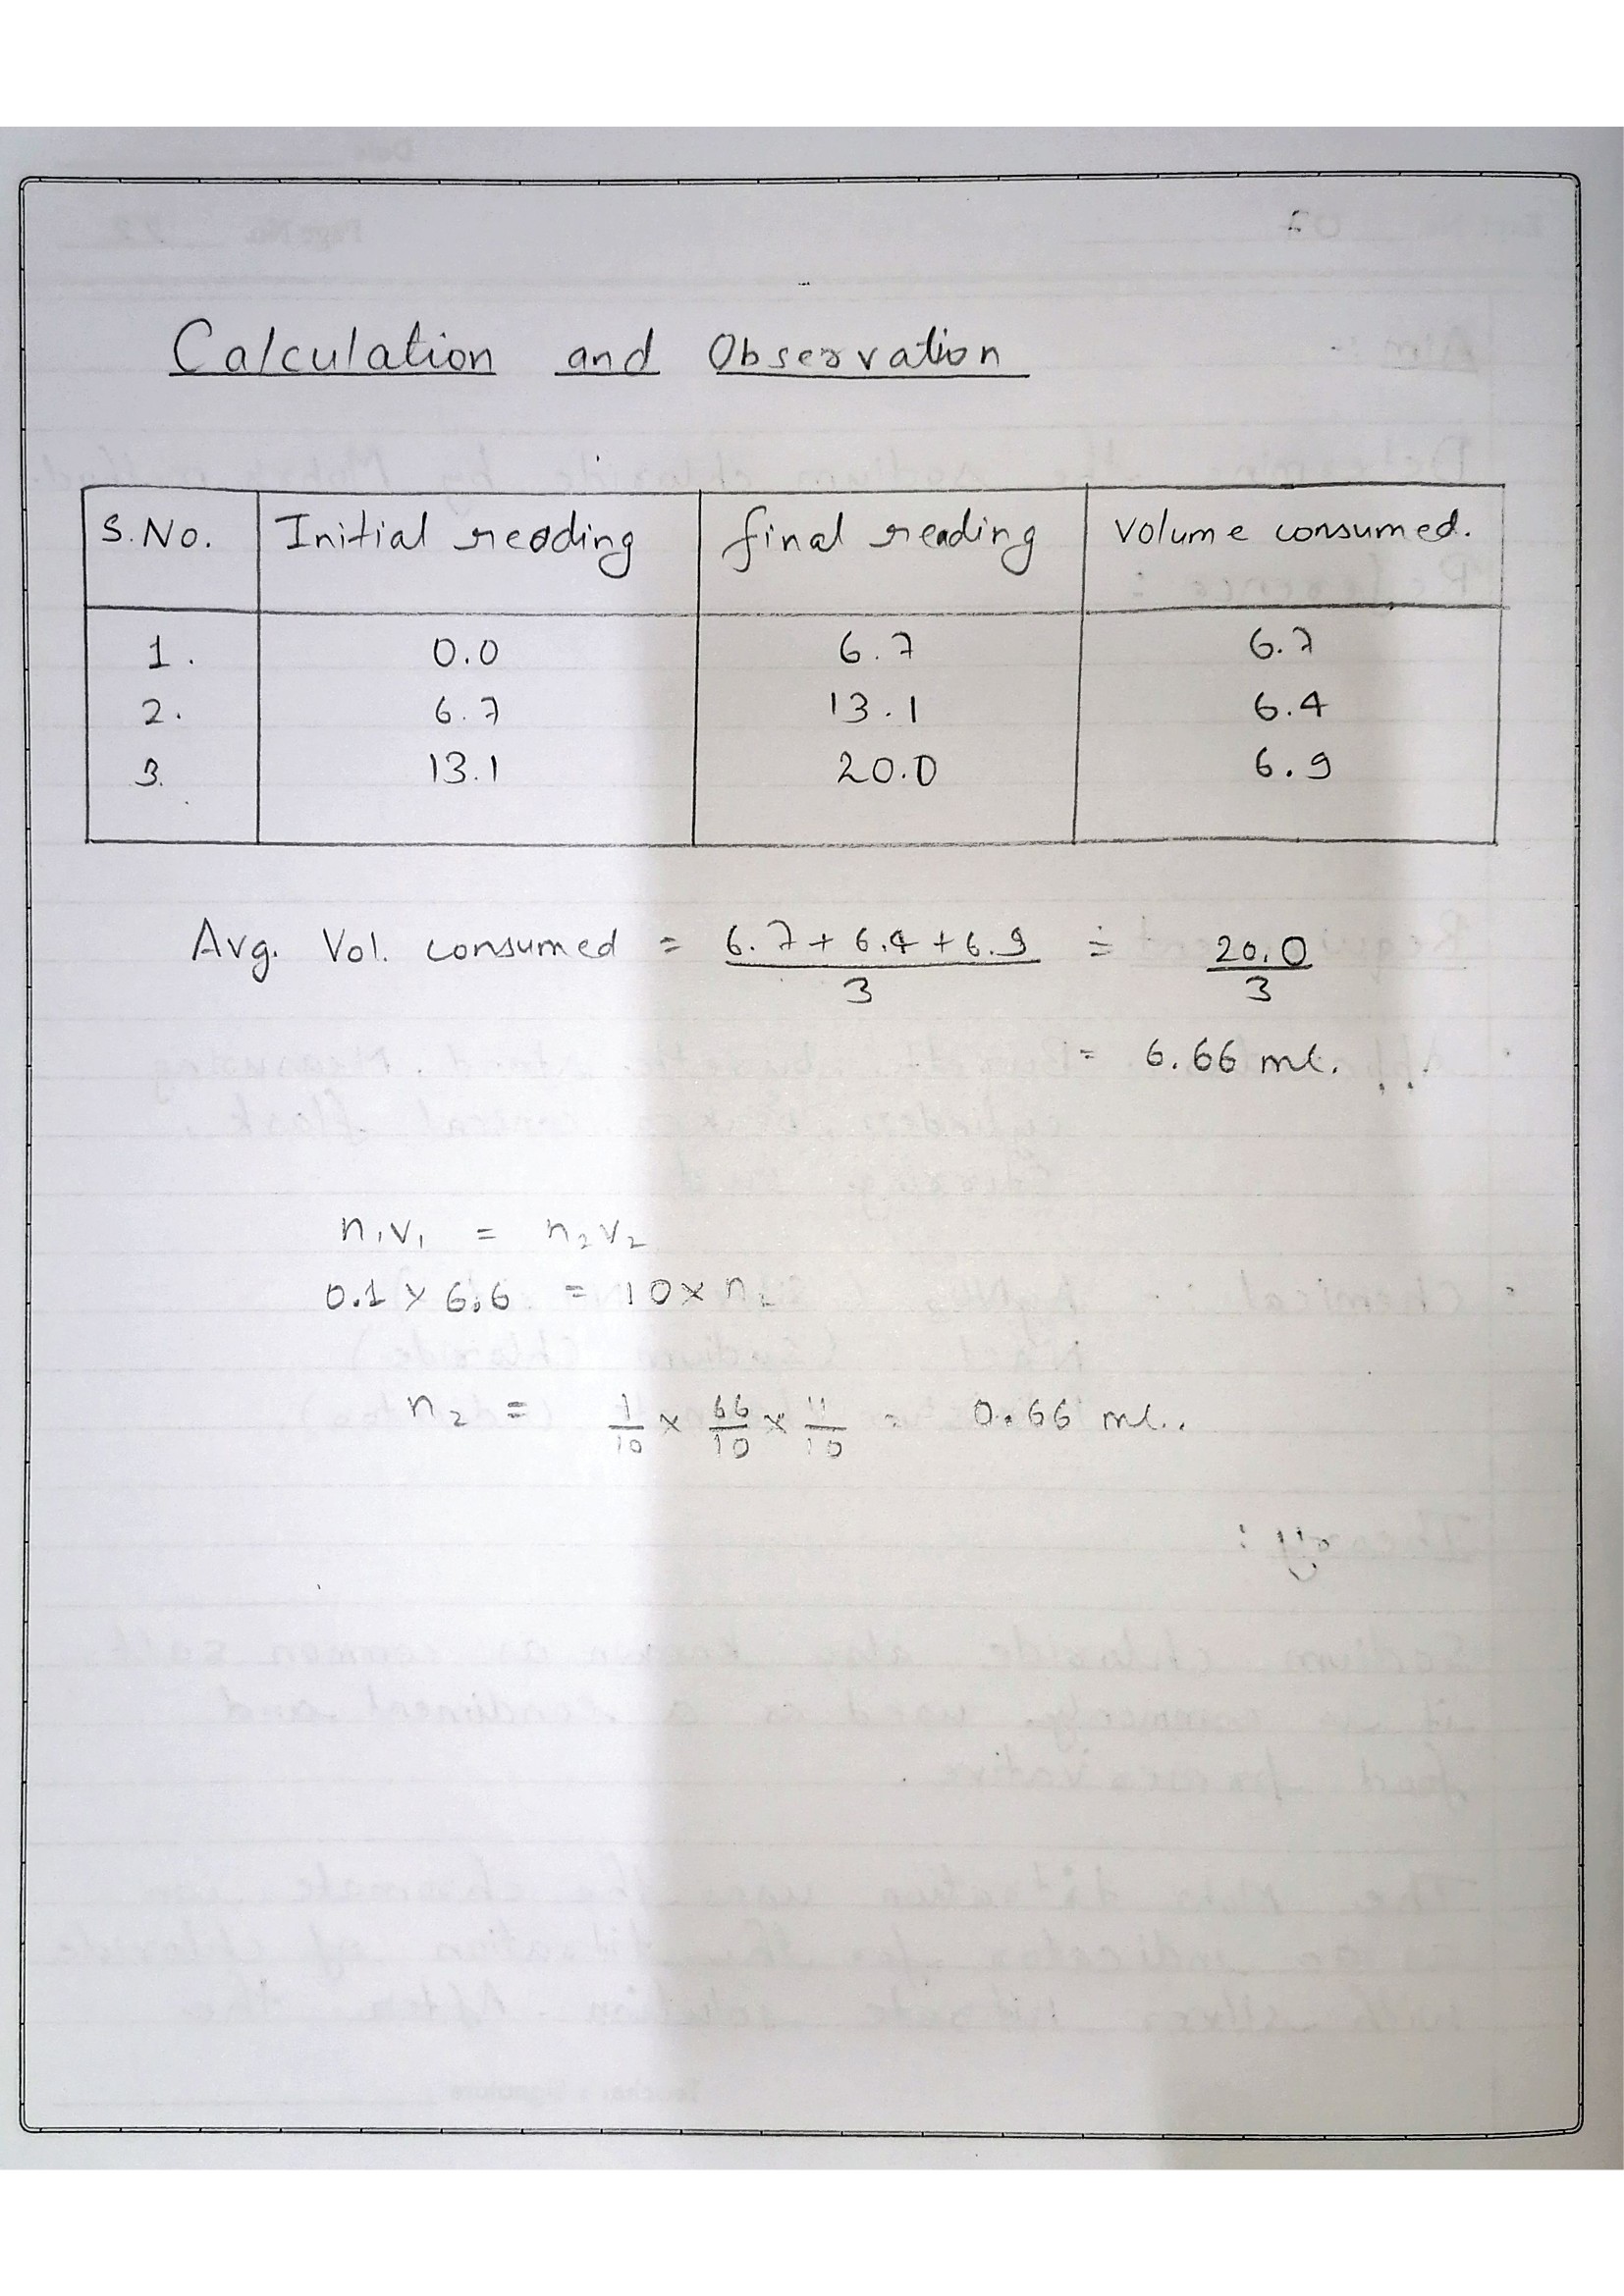 Calculation and Observation
S.No. Initial reading final reading Volume consumed.
1. 0.0 6.7 6.7
2. 6.7 13.1 6.4
3. 13.1 20.0 6.9
Avg. Vol. consumed = 6.7+6.4+6.9 / 3 = 20.0 / 3
= 6.66 ml.
n1v1 = n2v2
0.1 × 6.6 = 10 × n2
n2 = 1/10 × 66/10 × 11/10 = 0.66 ml.